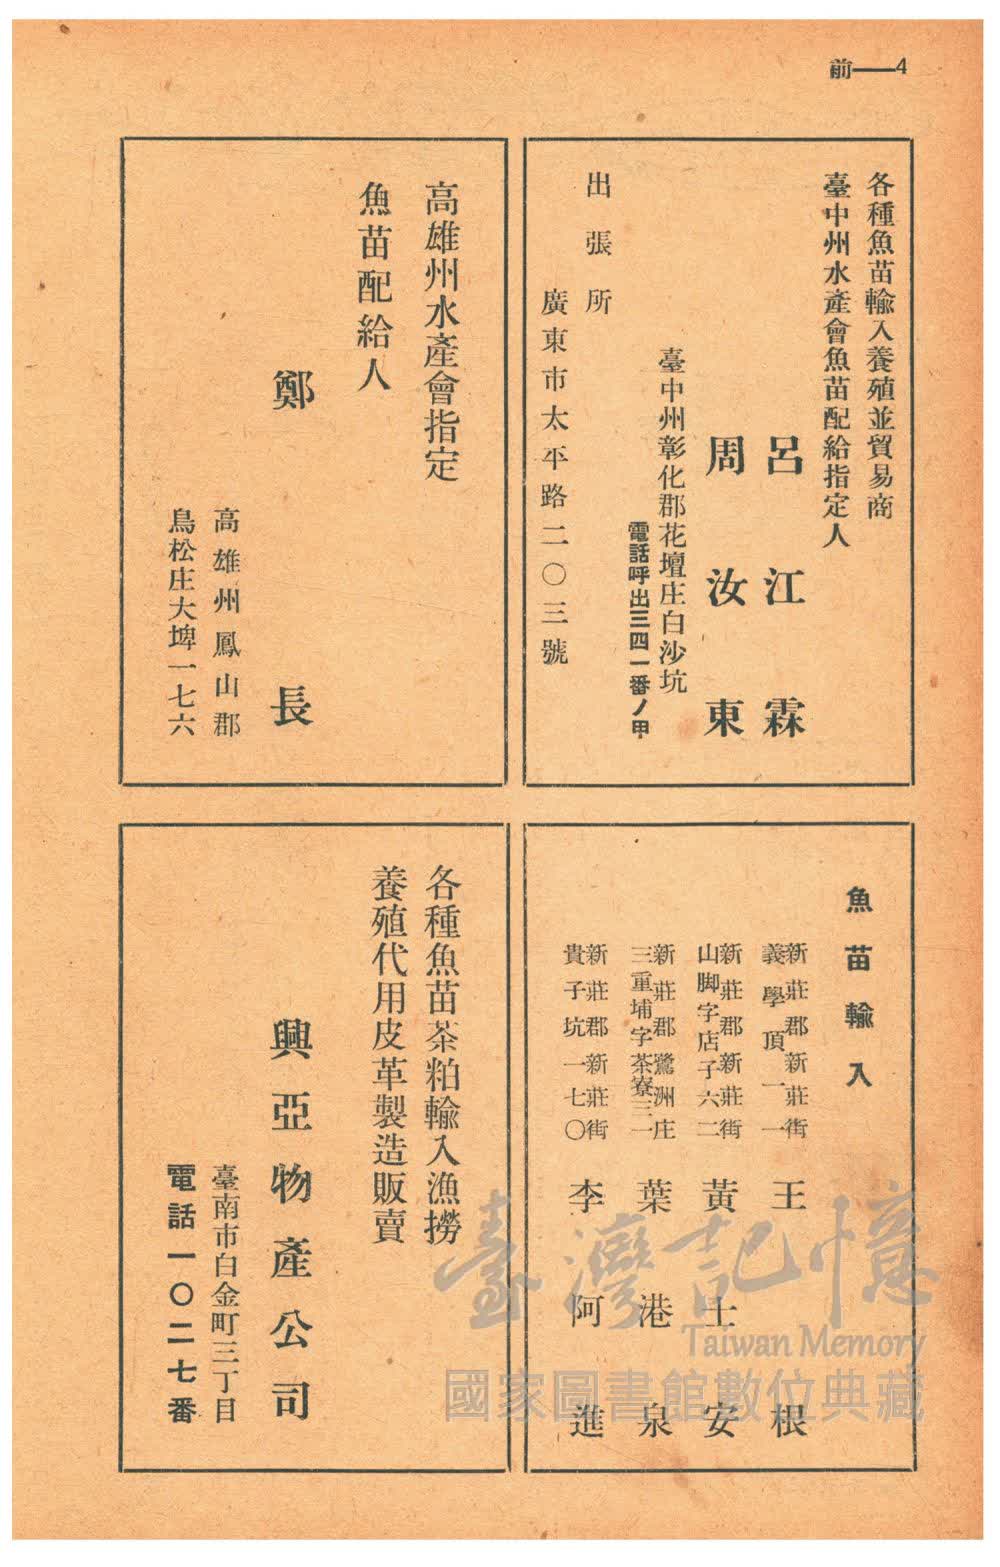 前——4
各種魚苗輸入養殖並貿易商
臺中州水產會魚苗配給指定人
呂江霖
周汝東
臺中州彰化郡花壇庄白沙坑
電話呼出三四一番ノ甲
出張所
廣東市太平路二〇三號
高雄州水產會指定
魚苗配給人
鄭長
高雄州鳳山郡
鳥松庄大埤一七六
魚苗輸入
新莊郡新莊街
義學頂一一
王根
新莊郡新莊街
山脚字店子六二
黃土安
新莊郡鷺洲庄
三重埔字茶寮三一
葉港泉
新莊郡新莊街
貴子坑一七〇
李阿進
各種魚苗茶粕輸入漁撈
養殖代用皮革製造販賣
興亞物產公司
臺南市白金町三丁目
電話一〇二七番
臺灣記憶
Taiwan Memory
國家圖書館數位典藏